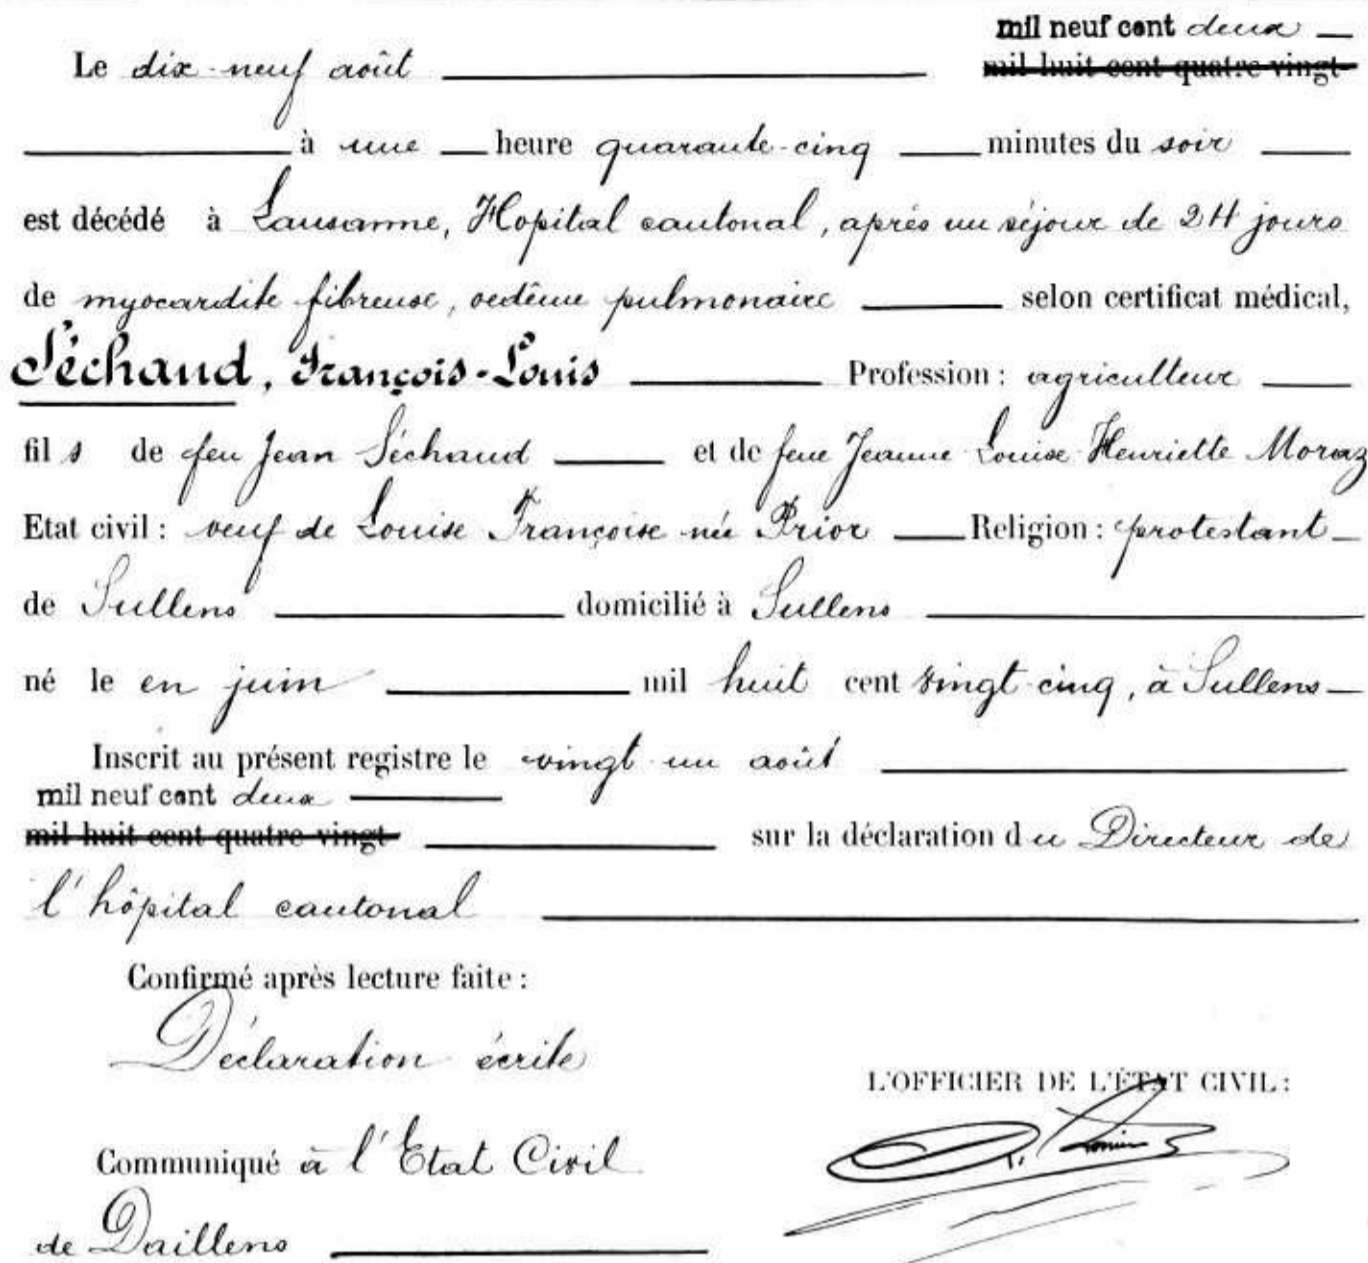 mil neuf cent deux
Le dix-neuf août mil huit cent quatre vingt
à une heure quarante-cinq minutes du soir
est décédé à Lausanne, Hopital cantonal, après un séjour de 24 jours
de myocardite fibreuse, oedème pulmonaire selon certificat médical,
Séchaud, François-Louis Profession : agriculteur
fils de feu Jean Séchaud et de feue Jeanne Louise Henriette Moraz
Etat civil : veuf de Louise Françoise née Prior Religion : protestant
de Sullens domicilié à Sullens
né le en juin mil huit cent vingt-cinq, à Sullens
Inscrit au présent registre le vingt-un août
mil neuf cent deux
mil huit cent quatre vingt sur la déclaration du Directeur de
l'hôpital cantonal
Confirmé après lecture faite :
Déclaration écrite
L'OFFICIER DE L'ÉTAT CIVIL :
Communiqué à l'Etat Civil
de Daillens